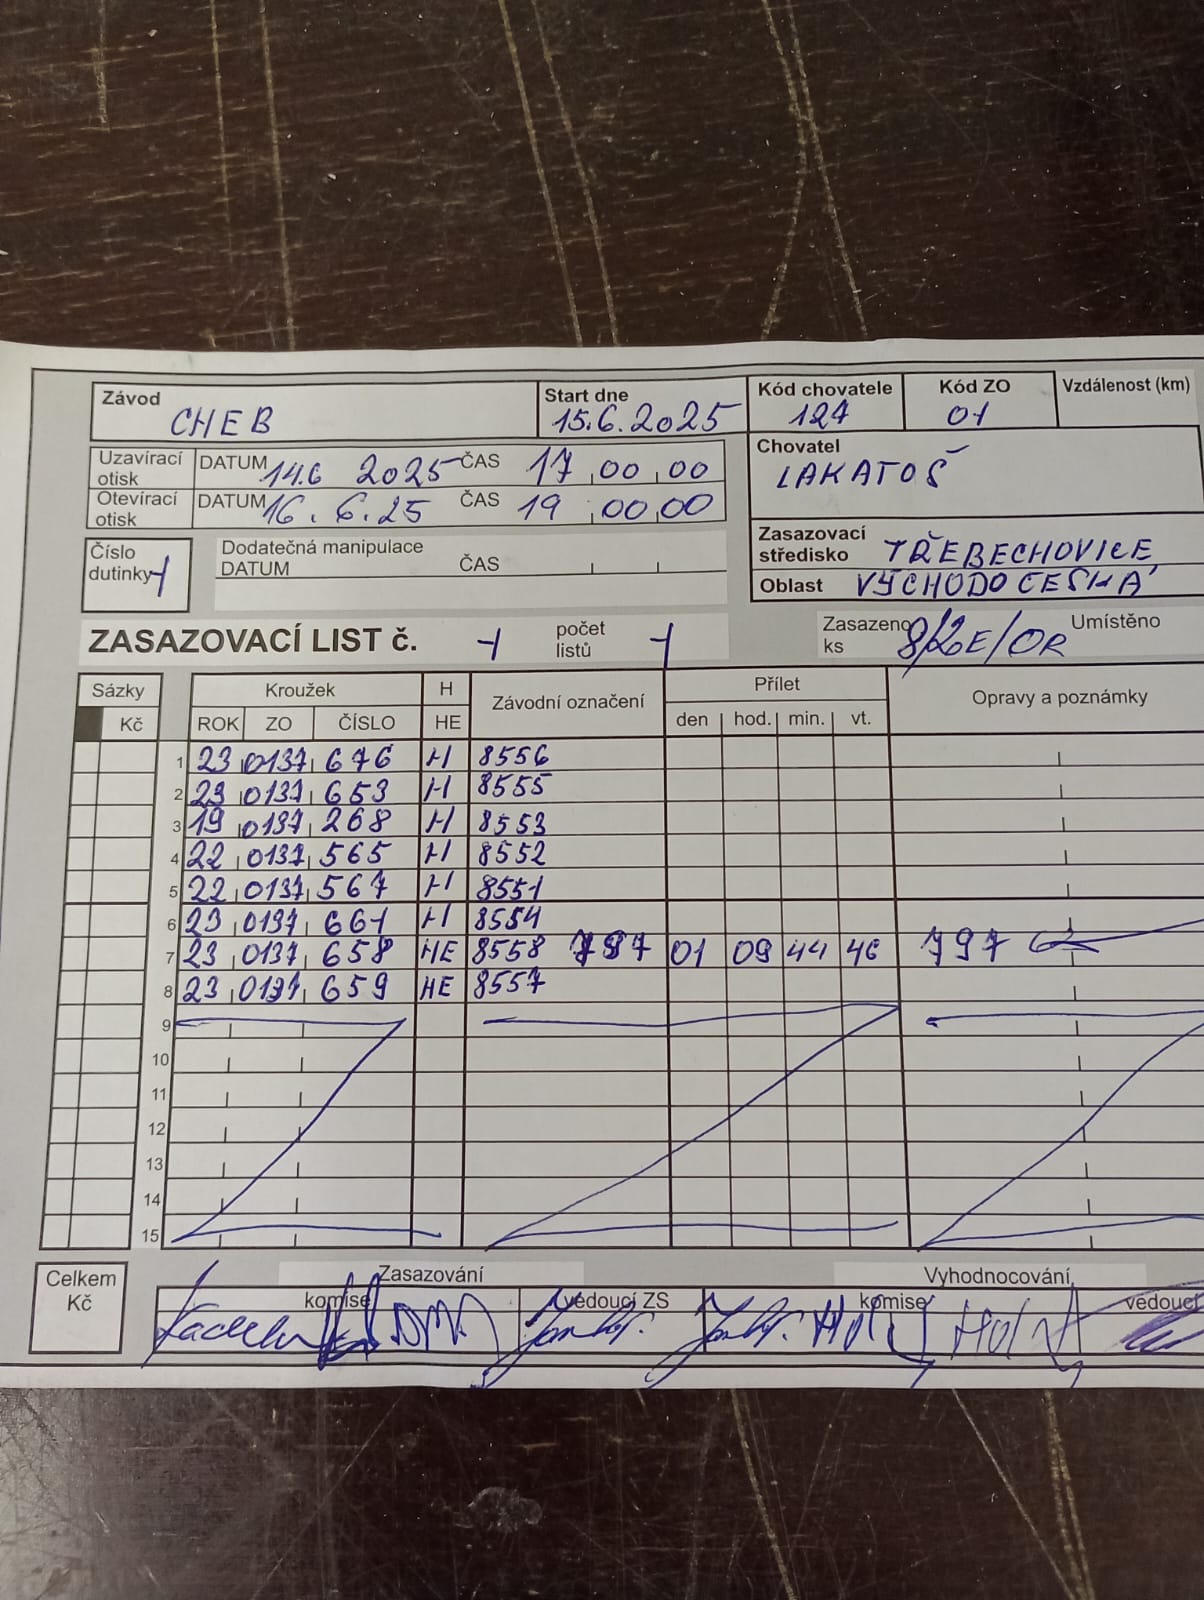 Závod Start dne Kód chovatele Kód ZO Vzdálenost (km)
CHEB 15.6.2025 127 01
Uzavírací otisk DATUM 14.6 2025 ČAS 17 00 00
Chovatel
LAKATOŠ
Otevírací otisk DATUM 16.6.25 ČAS 19 00 00
Zasazovací středisko TŘEBECHOVICE
Číslo dutinky 1
Dodatečná manipulace
DATUM ČAS
Oblast VÝCHODOČESKÁ
ZASAZOVACÍ LIST č. 1 počet listů 1 Zasazeno ks Umístěno
Sázky Kroužek H Závodní označení Přílet Opravy a poznámky
Kč ROK ZO ČÍSLO HE den hod. min. vt.
1 23 0137 676 H 8556
2 23 0137 653 H 8555
3 19 0137 268 H 8553
4 22 0137 565 H 8552
5 22 0137 567 H 8551
6 23 0137 661 H 8554
7 23 0137 658 HE 8558 01 09 44 46 797
8 23 0137 659 HE 8557
9
10
11
12
13
14
15
Celkem Kč Zasazování Vyhodnocování
komise vedoucí ZS komise vedoucí